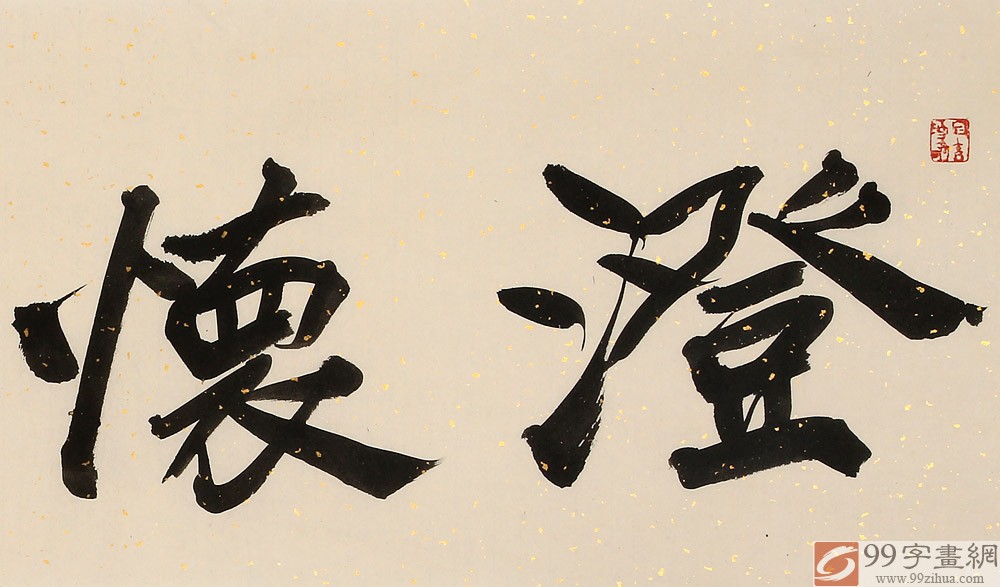 澄懷
99字畫網
www.99zihua.com